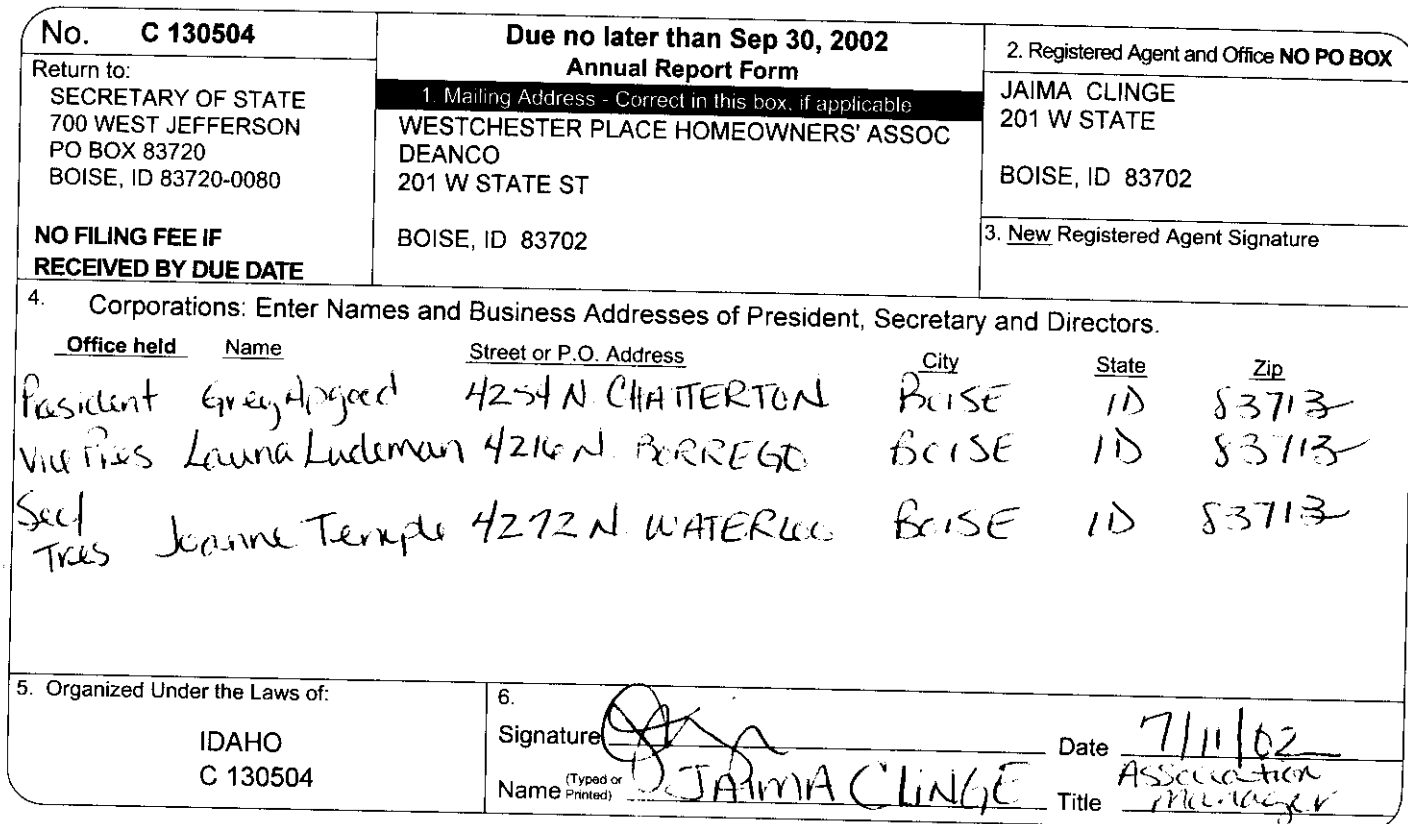 No. C 130504
Return to:
SECRETARY OF STATE
700 WEST JEFFERSON
PO BOX 83720
BOISE, ID 83720-0080
NO FILING FEE IF
RECEIVED BY DUE DATE
Due no later than Sep 30, 2002
Annual Report Form
1. Mailing Address - Correct in this box, if applicable
WESTCHESTER PLACE HOMEOWNERS' ASSOC
DEANCO
201 W STATE ST
BOISE, ID 83702
2. Registered Agent and Office NO PO BOX
JAIMA CLINGE
201 W STATE
BOISE, ID 83702
3. New Registered Agent Signature
4. Corporations: Enter Names and Business Addresses of President, Secretary and Directors.
Office held Name Street or P.O. Address City State Zip
President Greg 4254 N. CHATTERTON BOISE ID 83713
Vice Pres Launa Ludeman 4216 N. BORREGO BOISE ID 83713
Sec/
Tres Joanne Temple 4272 N. WATERLOO BOISE ID 83713
5. Organized Under the Laws of:
IDAHO
C 130504
6.
Signature Date 7/11/02
Name (Typed or Printed) JAIMA CLINGE Title Association Manager